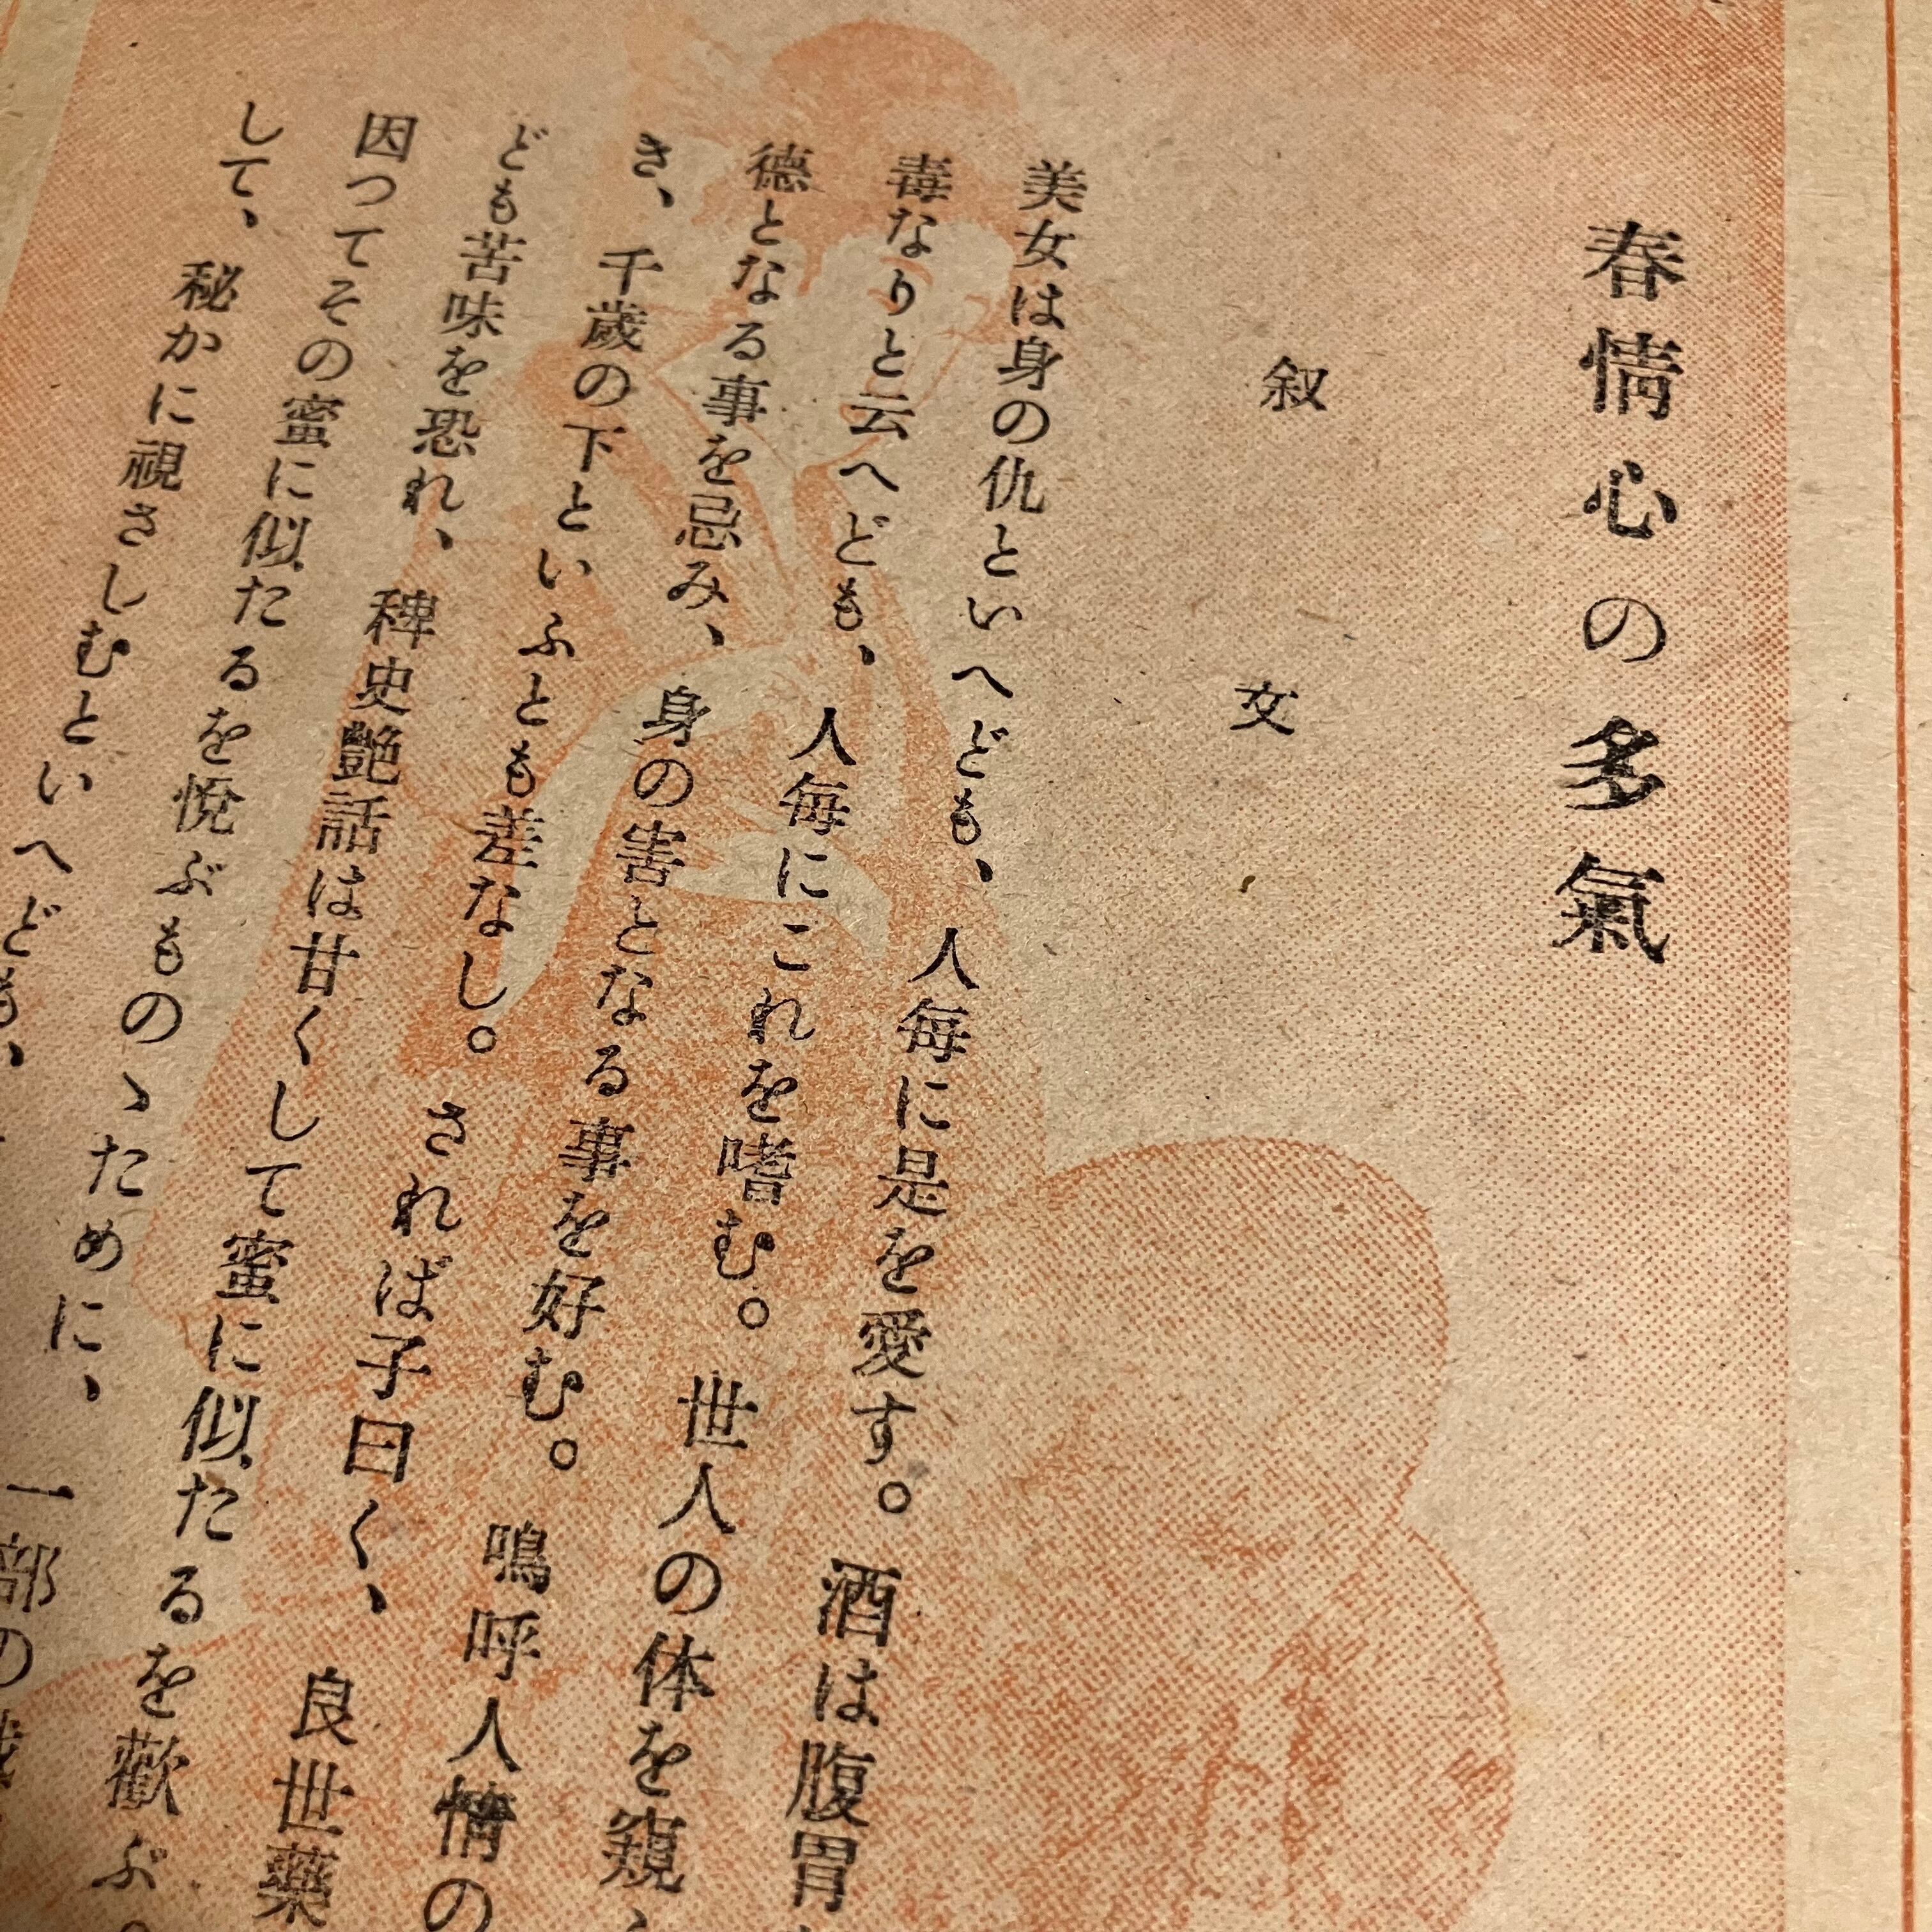 春情心の多氣
叙文
美女は身の仇といへども、人毎に是を愛す。酒は腹胃
毒なりと云へども、人毎にこれを嗜む。世人の体を窺
德となる事を忌み、身の害となる事を好む。鳴呼人情の
き、千歳の下といふとも差なし。されば子曰く、良世藥
ども苦味を恐れ、稗史艶話は甘くして蜜に似たるを歡ぶ。
因つてその蜜に似たるを悅ぶものゝために、一部の
して、秘かに視さしむといへども、